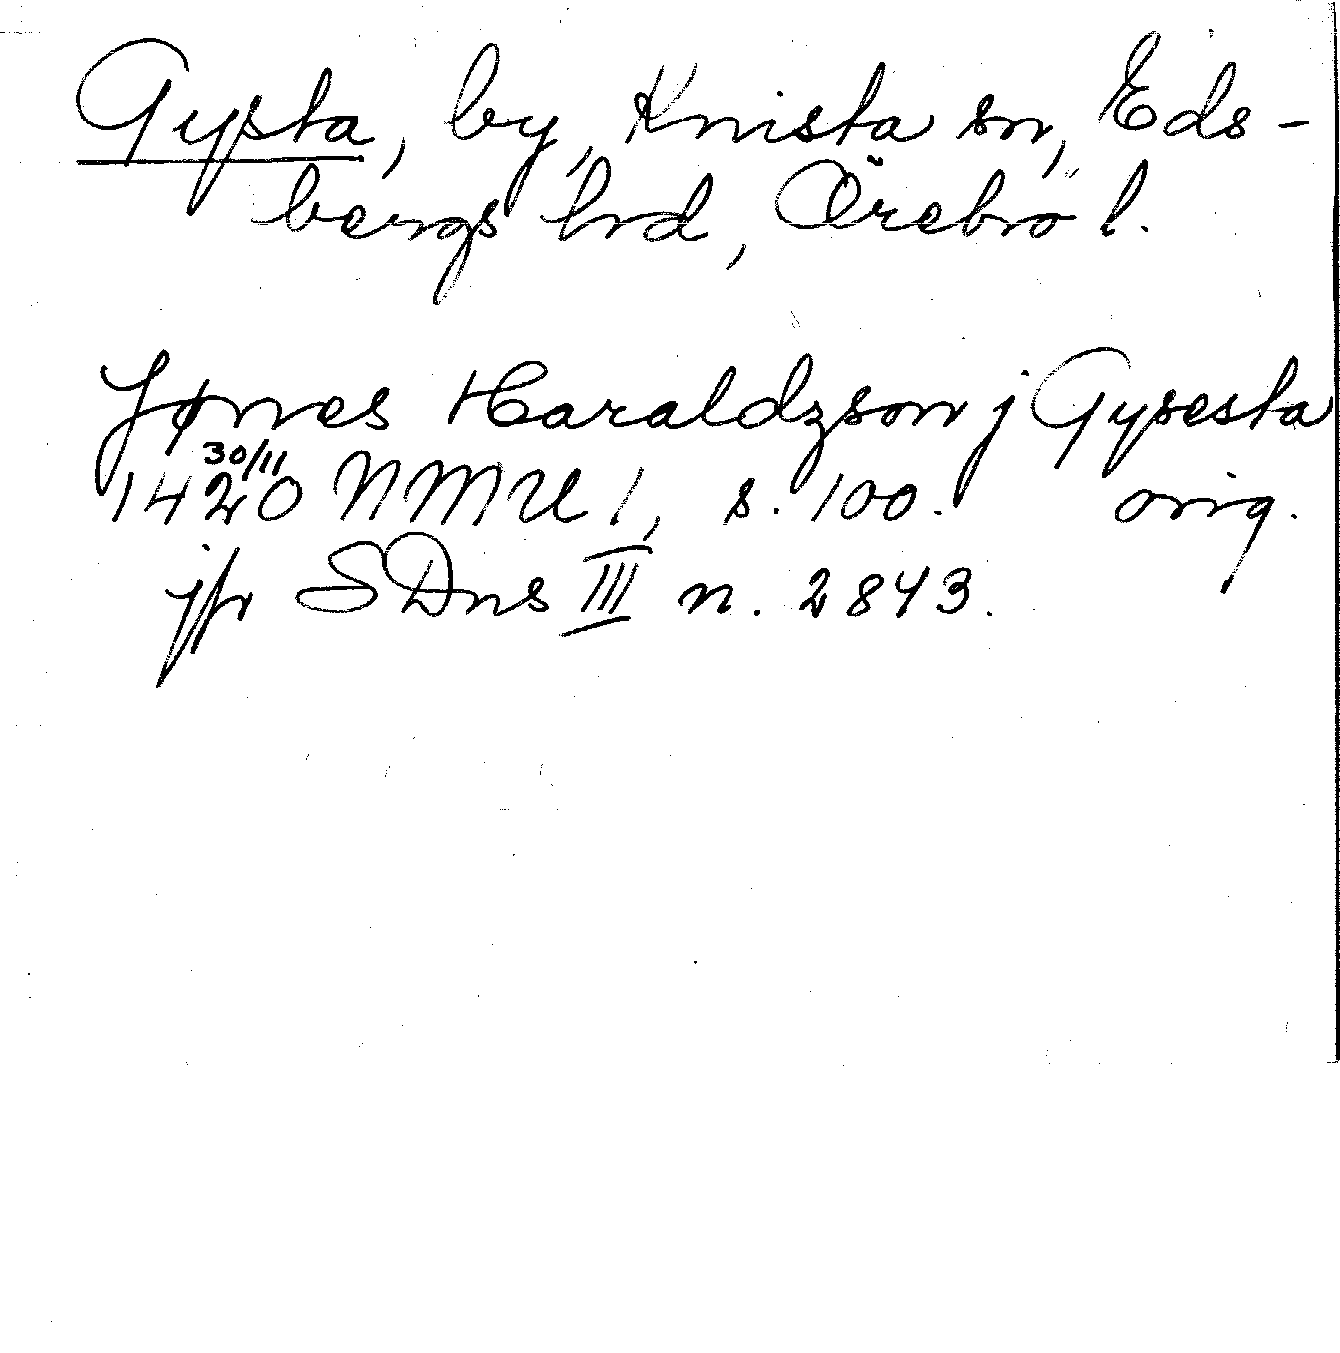 Gysta, by, Knista sn, Eds-
bergs hrd, Örebro l.
Jønes Haraldzson j Gysesta
30/11
1420 NMU 1, s. 100. orig.
jfr SDns III n. 2843.